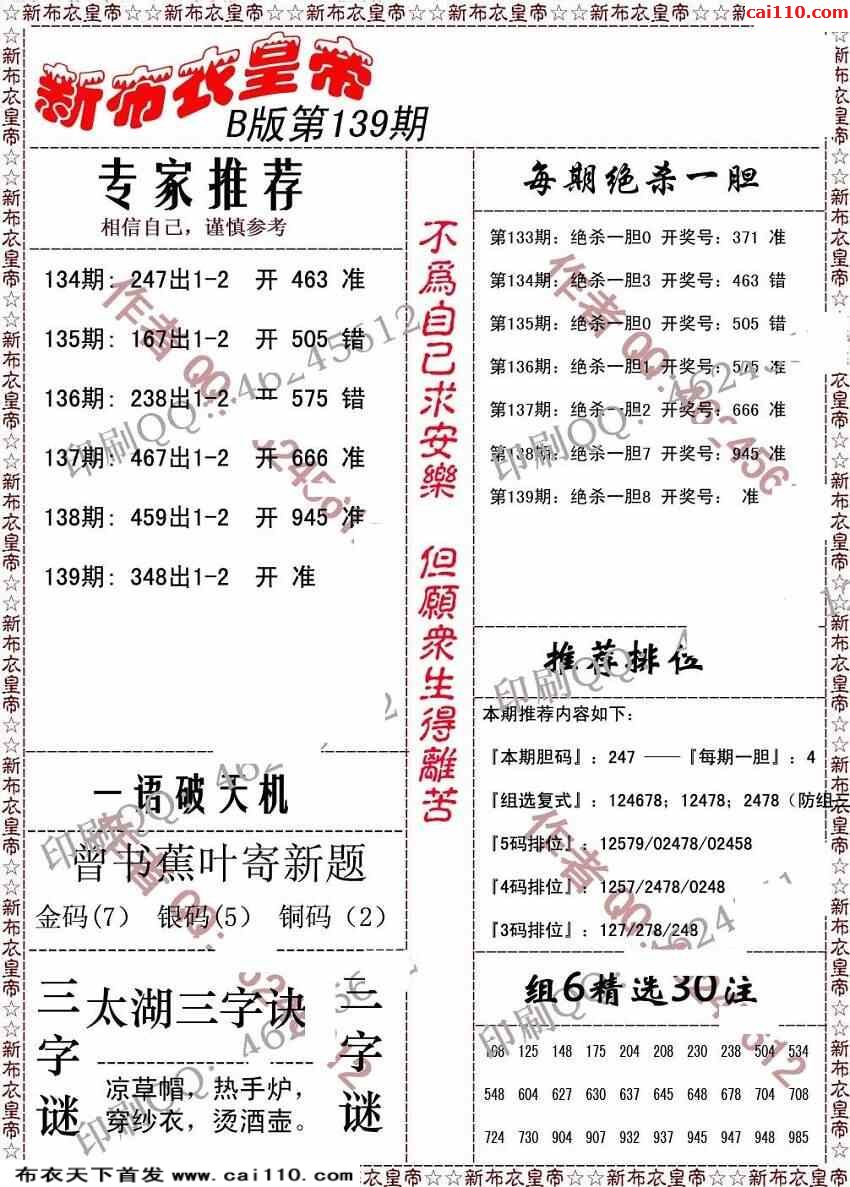 ☆☆新布衣皇帝☆☆新布衣皇帝☆☆新布衣皇帝☆☆新布衣皇帝☆☆新布衣皇帝☆☆新
cai110.com
新布衣皇帝
B版第139期
专家推荐
相信自己，谨慎参考
134期: 247出1-2 开 463 准
135期: 167出1-2 开 505 错
136期: 238出1-2 575 错
137期: 467出1-2 开 666 准
138期: 459出1-2 开 945 准
139期: 348出1-2 开 准
不為自己求安樂 但願衆生得離苦
每期绝杀一胆
第133期: 绝杀一胆0 开奖号: 371 准
第134期: 绝杀一胆3 开奖号: 463 错
第135期: 绝杀一胆0 开奖号: 505 错
第136期: 绝杀一胆1 开奖号: 575 准
第137期: 绝杀一胆2 开奖号: 666 准
第138期: 绝杀一胆7 开奖号: 945 准
第139期: 绝杀一胆8 开奖号: 准
推荐排位
本期推荐内容如下:
『本期胆码』: 247 ——『每期一胆』: 4
『组选复式』: 124678; 12478; 2478（防组三
『5码排位』: 12579/02478/02458
『4码排位』: 1257/2478/0248
『3码排位』: 127/278/248
一语破天机
曾书蕉叶寄新题
金码(7) 银码(5) 铜码（2）
三字谜
太湖三字诀
凉草帽，热手炉，
穿纱衣，烫酒壶。
三字谜
组6精选30注
108 125 148 175 204 208 230 238 504 534
548 604 627 630 637 645 648 678 704 708
724 730 904 907 932 937 945 947 948 985
作者QQ:
印刷QQ: 46245612
布衣天下首发 www.cai110.com
衣皇帝☆☆新布衣皇帝☆☆新布衣皇帝☆☆新布衣皇帝☆☆